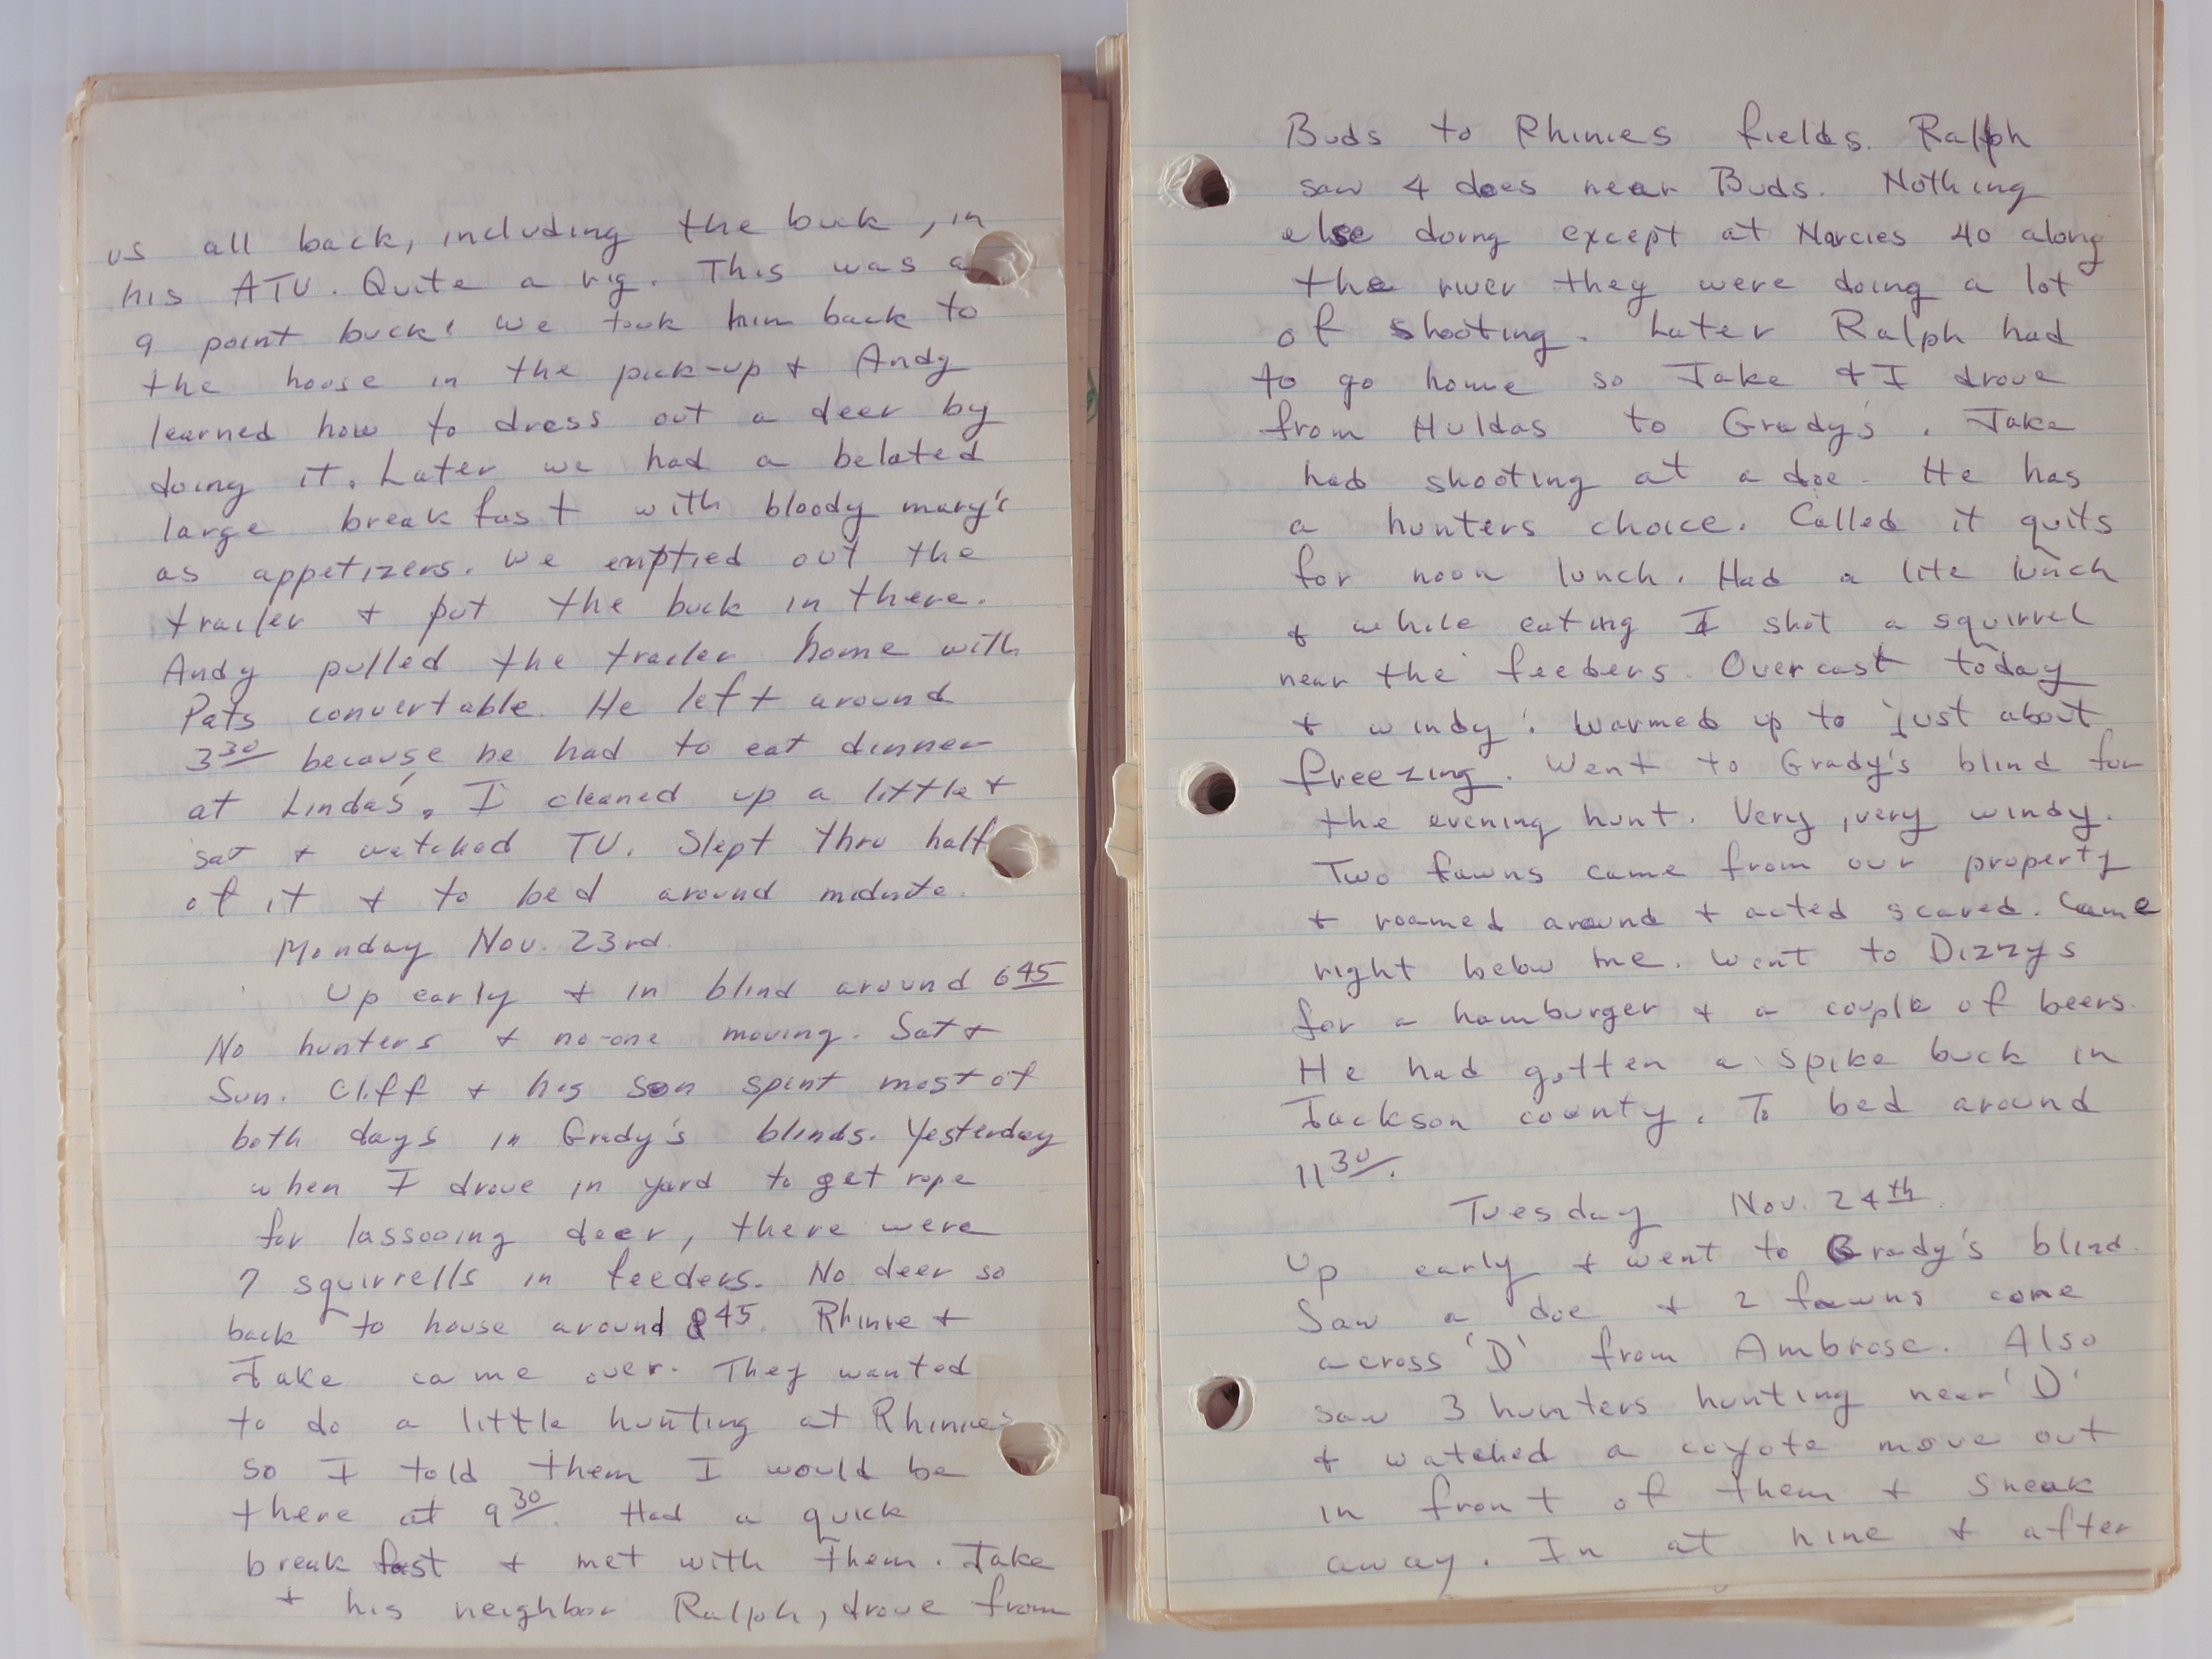 us all back, including the buck, in
his ATV. Quite a rig. This was a
9 point buck! We took him back to
the house in the pick-up + Andy
learned how to dress out a deer by
doing it. Later we had a belated
large breakfast with bloody mary's
as appetizers. We emptied out the
trailer + put the buck in there.
Andy pulled the trailer home with
Pats convertable. He left around
3 30 because he had to eat dinner
at Linda's. I cleaned up a little +
sat + watched TV. Slept thru half
of it + to bed around midnite.
Monday Nov. 23rd.
Up early + in blind around 6 45
No hunters + no-one moving. Sat +
Sun. Cliff + his son spent most of
both days in Grady's blinds. Yesterday
when I drove in yard to get rope
for lassooing deer, there were
7 squirrells in feeders. No deer so
back to house around 8 45. Rhinie +
Jake came over. They wanted
to do a little hunting at Rhinies
so I told them I would be
there at 9 30. Had a quick
breakfast + met with them. Jake
+ his neighbor Ralph, drove from
Buds to Rhinies fields. Ralph
saw 4 does near Buds. Nothing
else doing except at Narcies 40 along
the river they were doing a lot
of shooting. Later Ralph had
to go home so Jake + I drove
from Huldas to Grady's. Jake
had shooting at a doe. He has
a hunters choice. Called it quits
for noon lunch. Had a lite lunch
+ while eating I shot a squirrel
near the feeders. Overcast today
+ windy. Warmed up to just about
freezing. Went to Grady's blind for
the evening hunt. Very, very windy.
Two fawns came from our property
+ roamed around + acted scared. Came
right below me. Went to Dizzys
for a hamburger + a couple of beers.
He had gotten a spike buck in
Jackson county. To bed around
11 30.
Tuesday Nov. 24th.
Up early + went to Grady's blind.
Saw a doe + 2 fawns come
across 'D' from Ambrose. Also
saw 3 hunters hunting near 'D'
+ watched a coyote move out
in front of them + sneak
away. In at nine + after